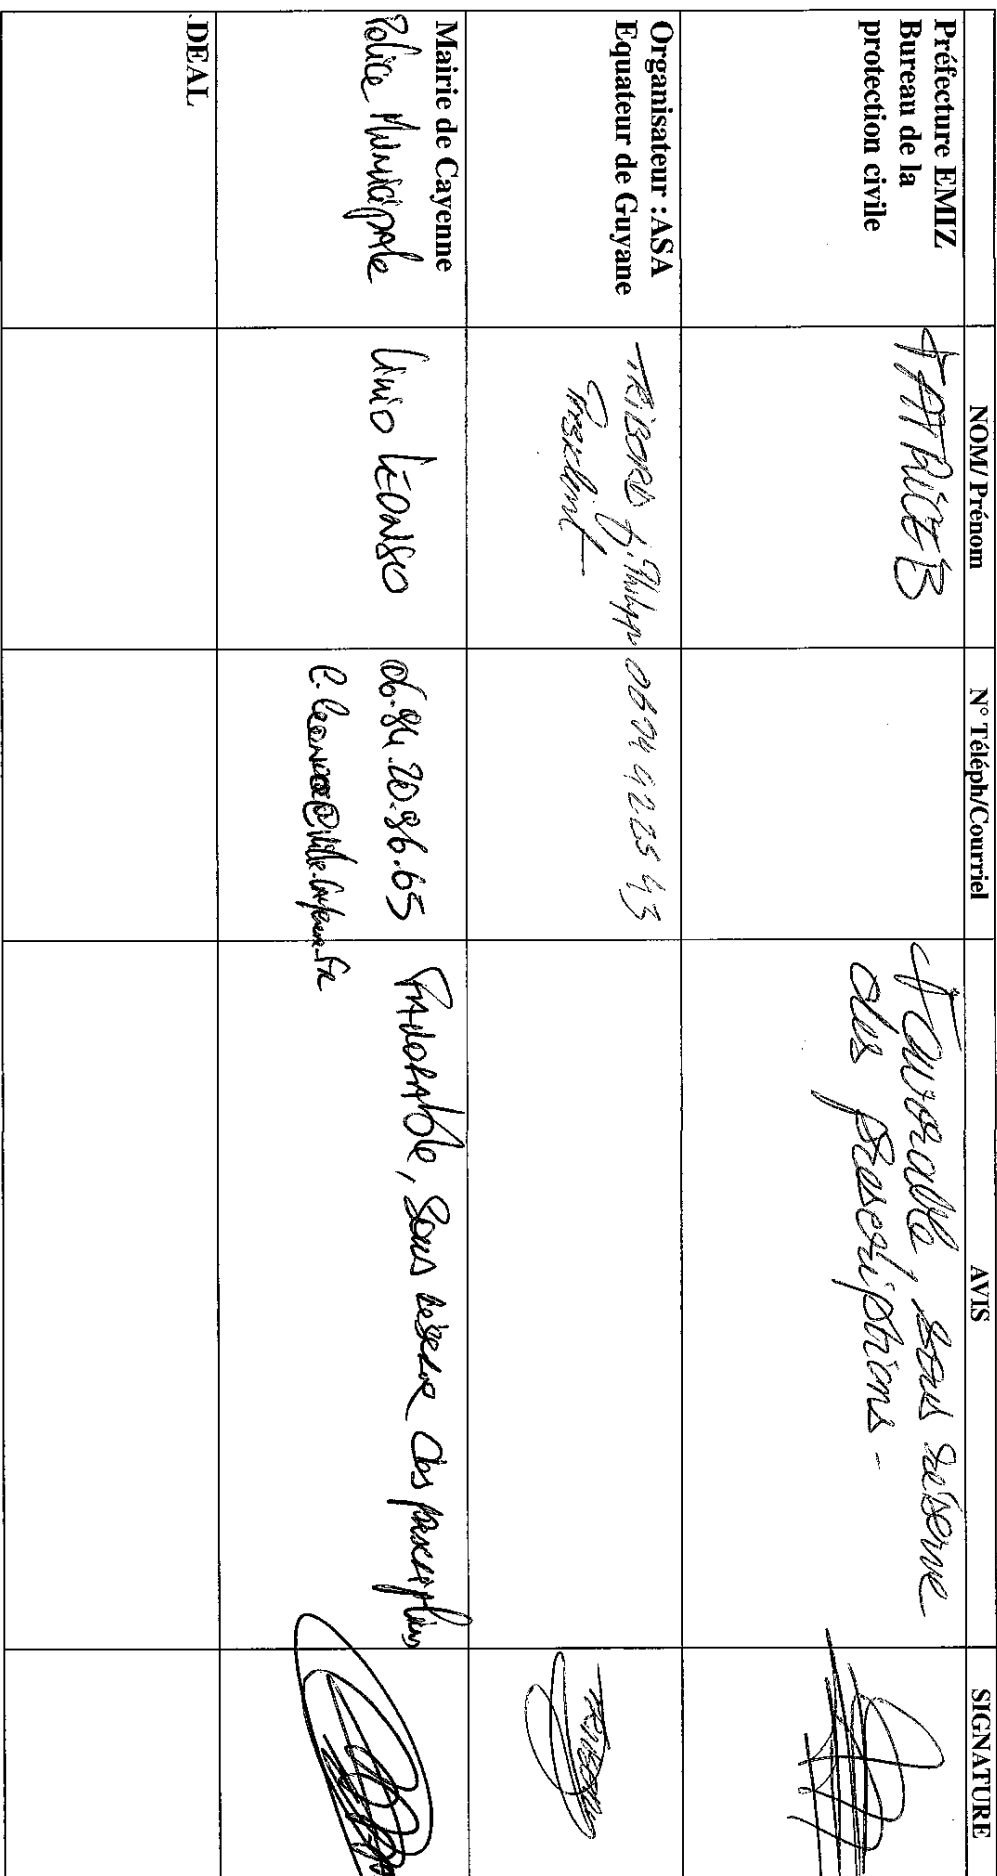 NOM/ Prénom N° Téléph/Courriel AVIS SIGNATURE
Préfecture EMIZ
Bureau de la
protection civile
Favorable, sous réserve
des prescriptions -
Organisateur : ASA
Equateur de Guyane
TRIBORD J. Philippe 0694 42 25 43
President
Mairie de Cayenne
Police Municipale
Linio LÉONSO
06.94.20.96.65
Favorable, sous réserve des prescriptions
DEAL